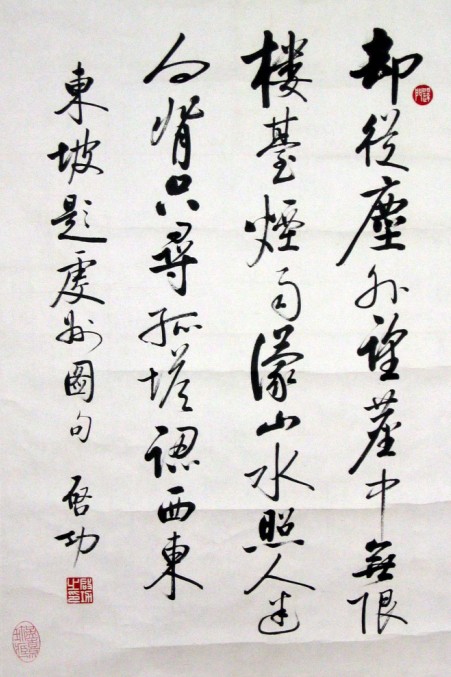 却從塵外望塵中無限
楼臺煙雨濛山水照人迷
向背只尋孤塔認西東
東坡題虔州圖句 啓功